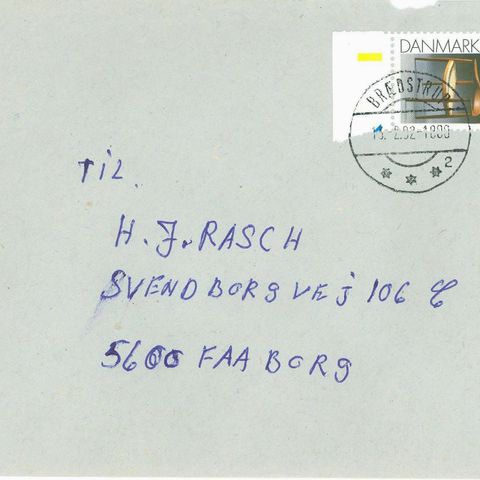 DANMARK
BRÆDSTRUP
13.2.92-1800
2
TIL.
H. J. RASCH
SVENDBORGVEJ 106 C
5600 FAABORG